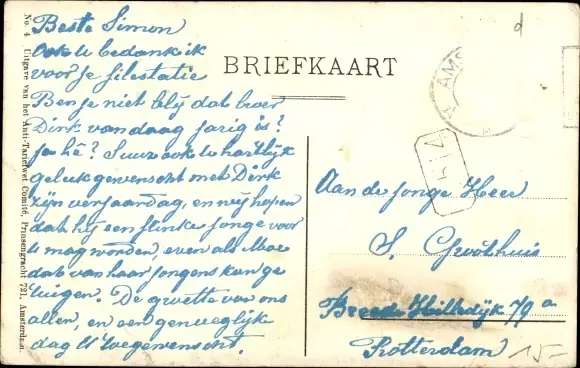 Beste Simon
Ook u bedank ik
voor je filestatie
Ben je niet blij dat broer
Dirk vandaag jarig is?
Ja hê? Suus ook u hartlijk
geluk gewenscht met Dirk
zijn verjaardag, en wij hopen
dat hij een flinke jonge voor
U mag worden, even als Moe
dat van haar jongens kan ge
tuigen. De groette van ons
allen, en een genueglijke
dag U toegewenscht.
No. 4 Uitgave van het Anti-Tariefwet Comité, Prinsengracht 721, Amsterdam.
BRIEFKAART
AMS
Aan de jonge Heer
S. Groothuis
Breede Hilledijk 79 a
Rotterdam
15-
d